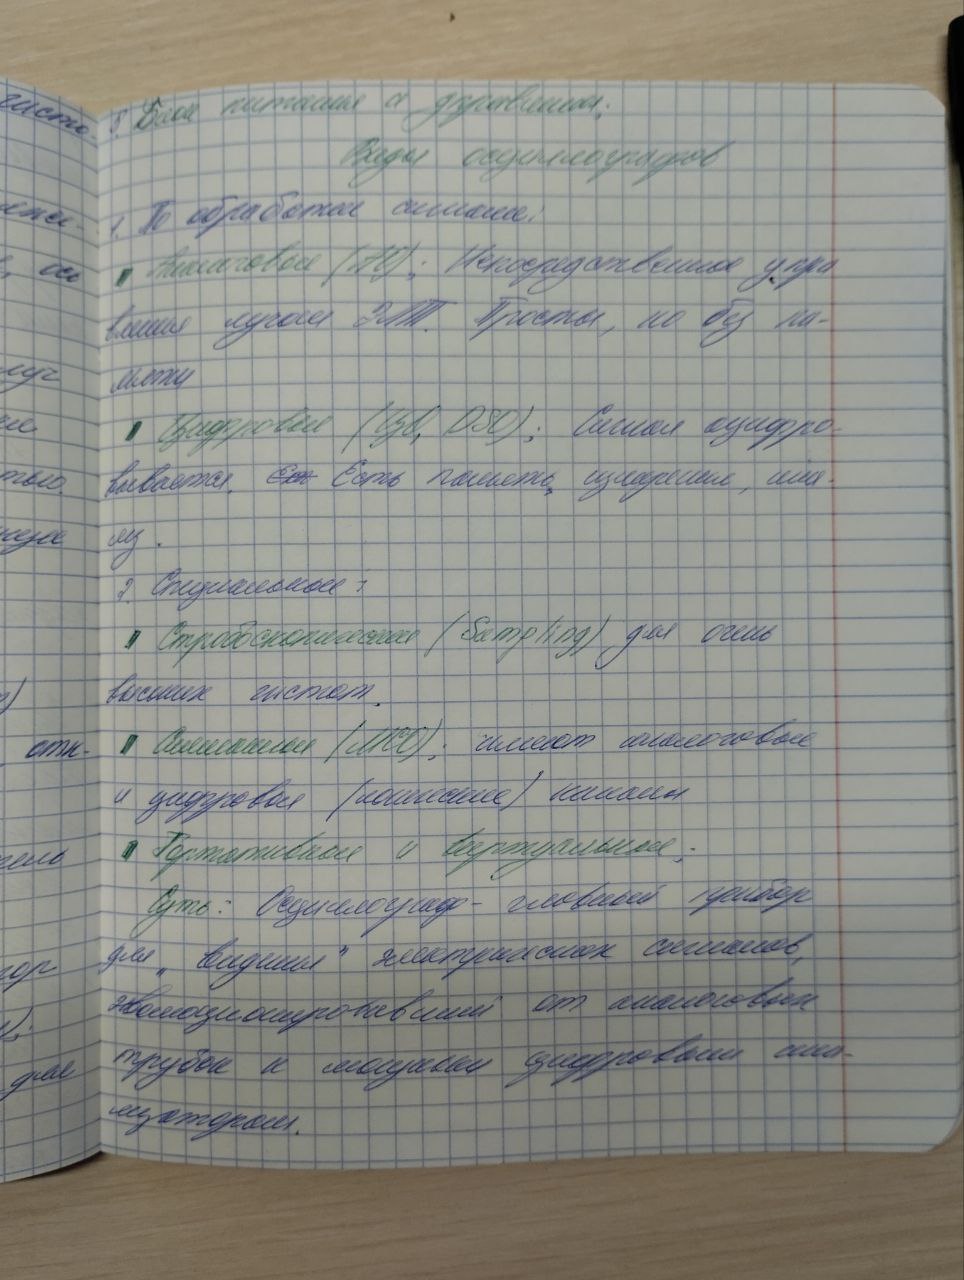 5. Блок питания и управления.
Виды осциллографов
1. По обработке сигнала:
Аналоговые (АО); Непосредственное упра
вление лучом ЭЛТ. Просты, но без па-
мяти
Цифровые (ЦО, DSO); Сигнал оцифро-
вывается. Есть память, измерение, ана-
лиз.
2. Специальные:
Стробоскопические (Sampling) для очень
высоких частот.
Смешанные (MSO); имеют аналоговые
и цифровые (логические) каналы
Портативные и виртуальные;
Суть: Осциллограф - главный прибор
для „видения" электрических сигналов,
эволюционировавший от аналоговых
трубок к мощным цифровым ана-
лизаторам.